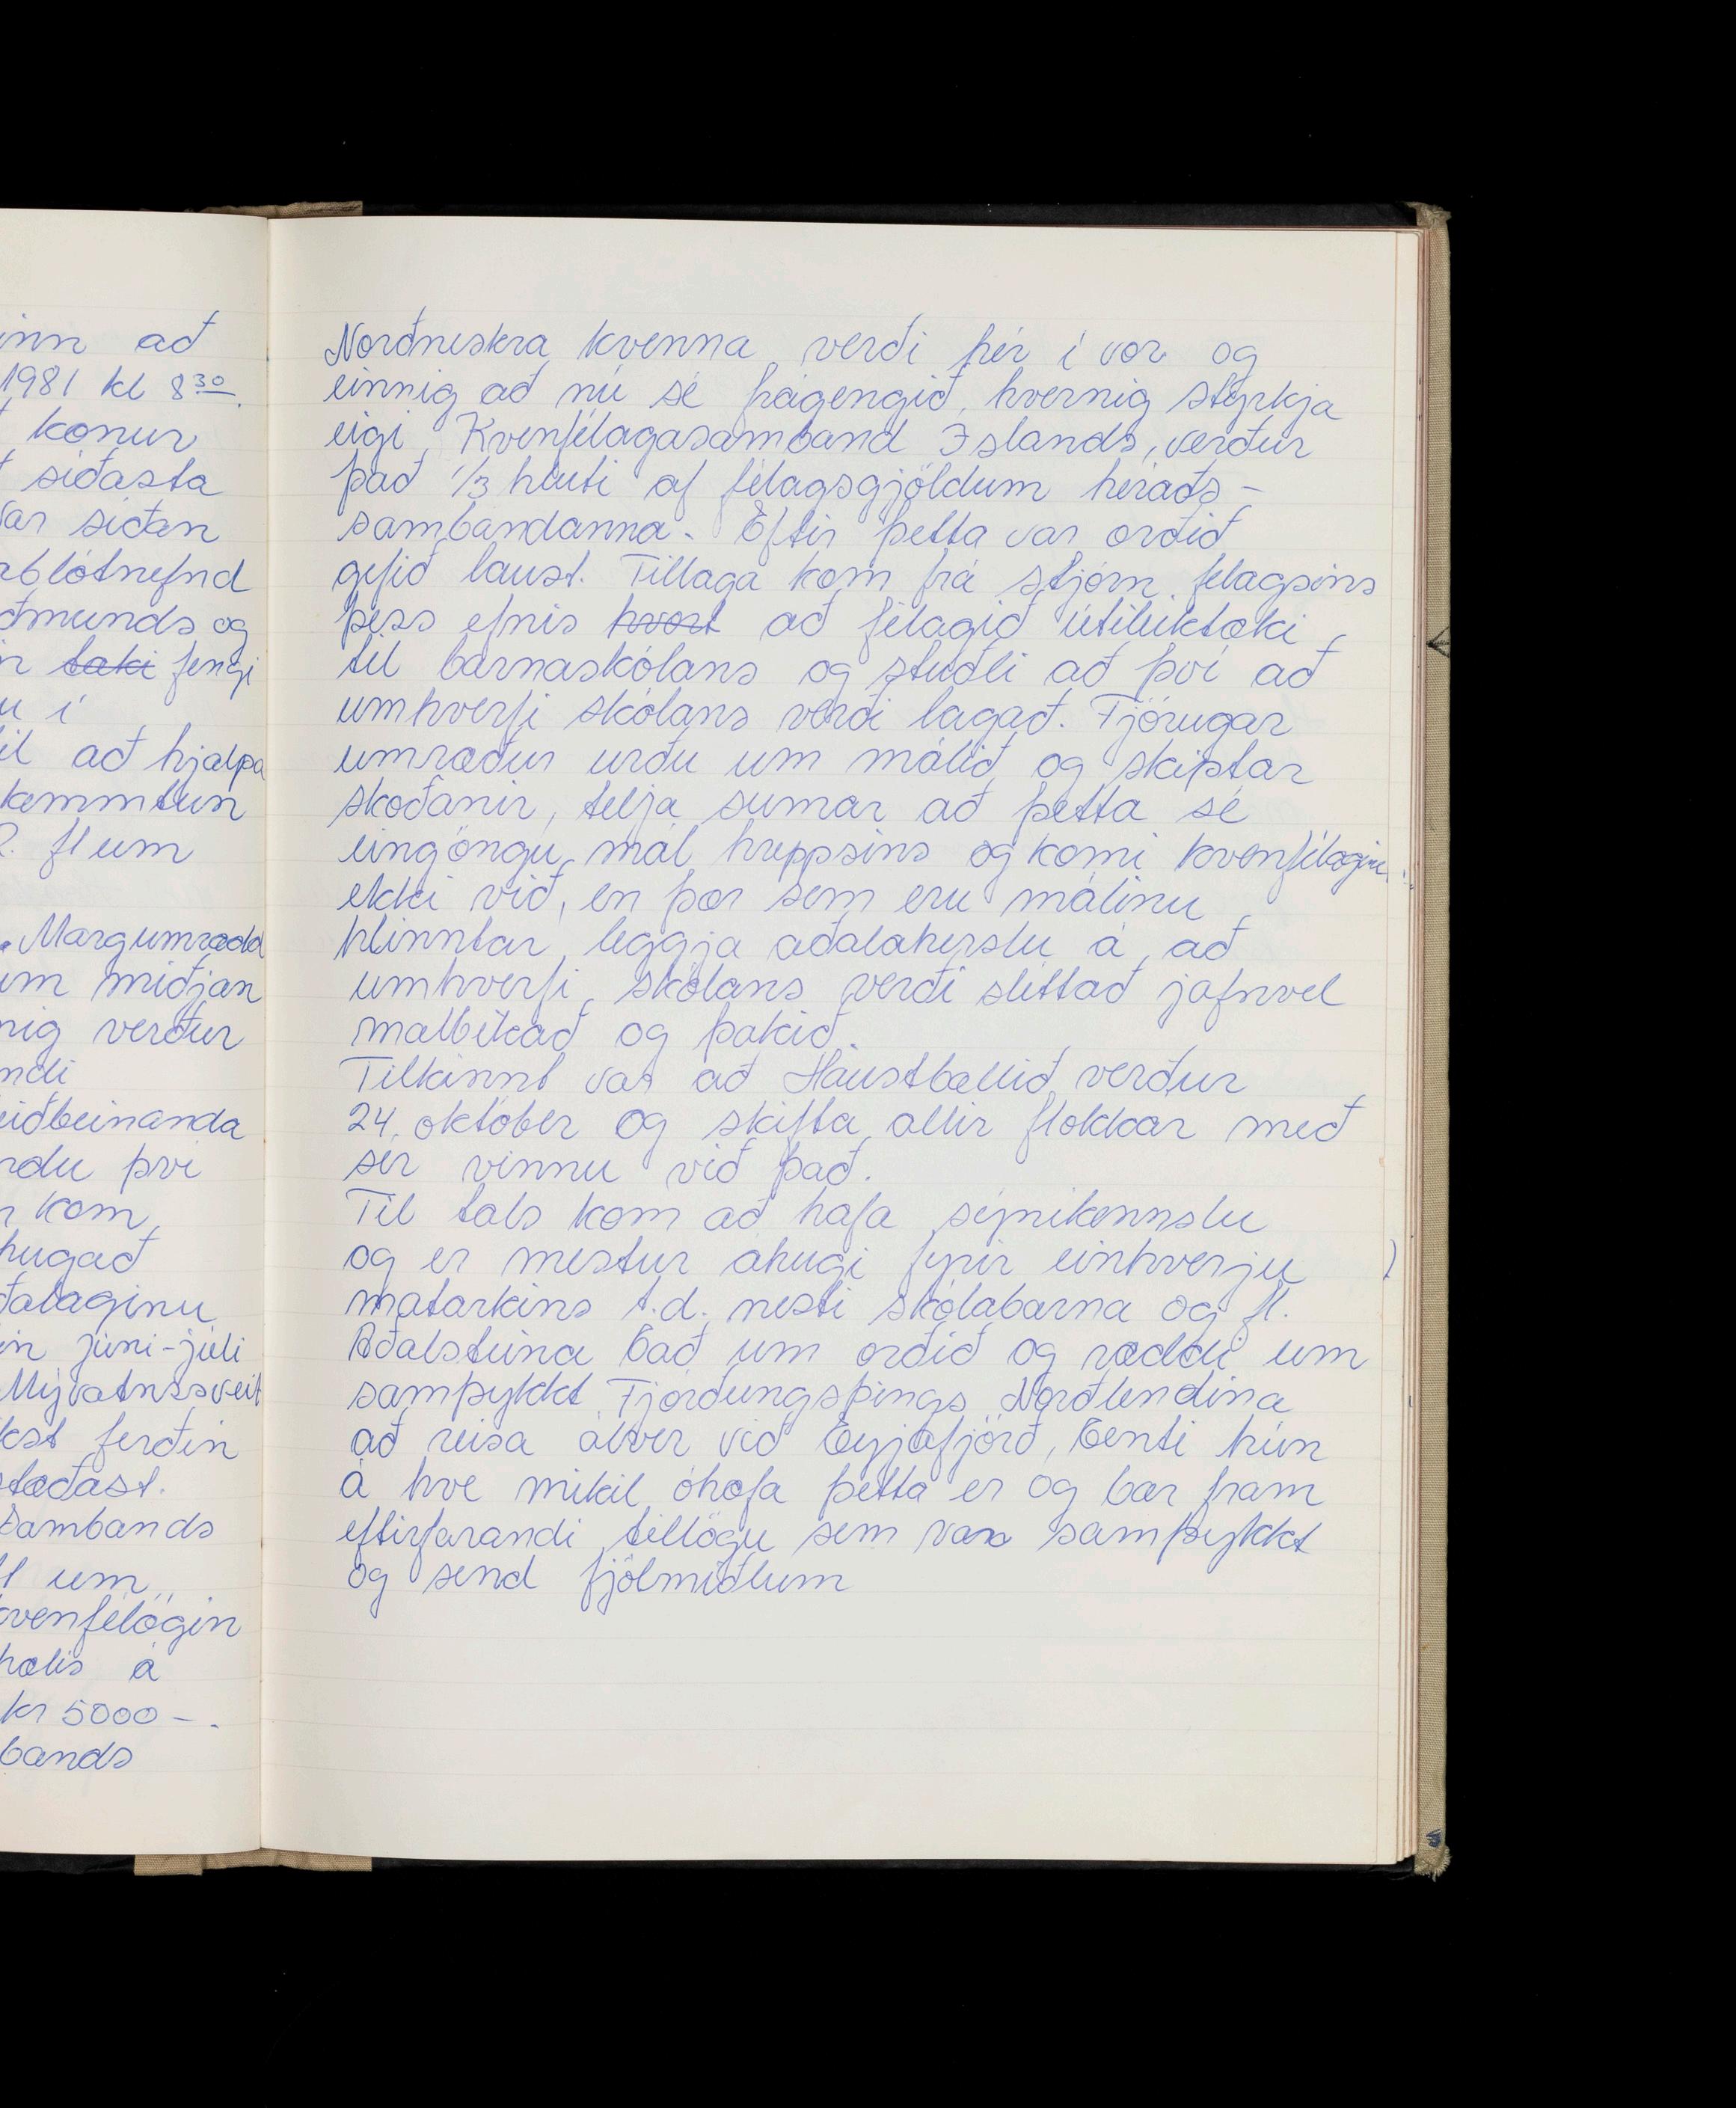 inn að
1981 kl 8³⁰.
konur
síðasta
var síðan
ablótnefnd
ðmunds og
n taki fengi
u í
il að hjalpa
kemmtun
2. fl um
. Margumrædd
um miðjan
nig verður
ndi
eiðbeinanda
ndu því
n kom
hugað
ðalaginu
in júni-júlí
Mývatnssveit
kst ferðin
staðast.
Sambands
um
kvenfélögin
hælis á
kr 5000-.
bands
Norðneskra kvenna verði hér í vor og
einnig að nú sé frágengið, hvernig styrkja
eigi Kvenfélagasamband Islands, verður
það 1/3 hluti af félagsgjöldum héraðs-
sambandanna. Eftir þetta var orðið
gefið laust. Tillaga kom frá stjórn félagsins
þess efnis hvort að félagið útileiktæki
til barnaskólans og stuðli að því að
umhverfi skólans verði lagað. Fjörugar
umræður urðu um málið og skiptar
skoðanir, telja sumar að þetta sé
eingöngu mál hreppsins og komi kvenfélaginu
ekki við, en þær sem eru málinu
hlinntar leggja aðalaherslu á að
umhverfi skólans verði slittað jafnvel
malbikað og þakið.
Tilkinnt var að Haustballið verður
24. október og skifta allir flokkar með
sér vinnu við það.
Til tals kom að hafa sýnikennslu
og er mestur áhugi fyrir einhverju
matarkins t.d. nesti skólabarna og fl.
Aðalsteina bað um orðið og ræddi um
samþykkt Fjórðungsþings Norðlendina
að reisa álver við Eyjafjörð, benti hún
á hve mikil óhæfa þetta er og bar fram
eftirfarandi tillögu sem var samþykkt
og send fjölmiðlum